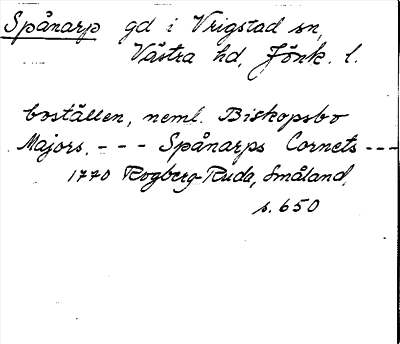 Spånarp gd i Vrigstad sn,
Västra hd, Jönk. l.
boställen, neml. Biskopsbo
Majors, - - - Spånarps Cornets - - -
1770 Rogberg-Ruda, Småland,
s. 650